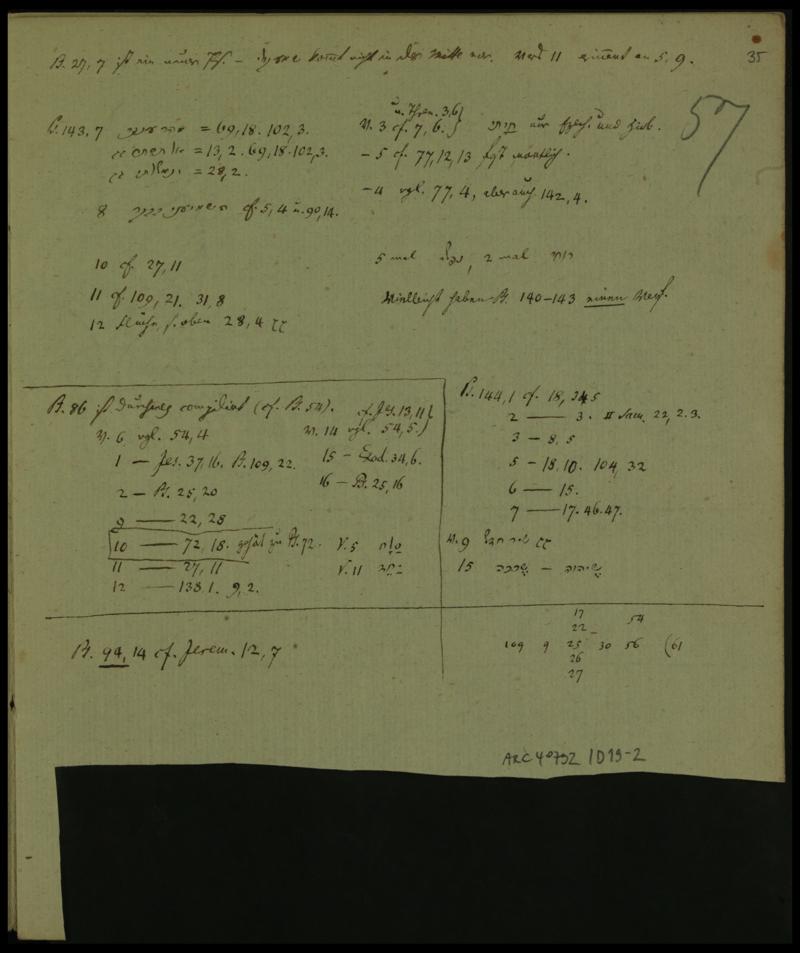 Ps. 27, 7 ist ein neuer Ps. – kommt nicht in der Mitte vor. Vers 11 erinnert an 5, 9.
35
57
Ps. 143, 7 מהר ענני = 69, 18. 102, 3.
אל תסתר = 13, 2. 69, 18. 102, 3.
ונמשלתי = 28, 2.
8 השמיעני בבקר cf. 5, 4 u. 90, 14.
10 cf. 27, 11
11 cf. 109, 21. 31, 8
12 s. oben 28, 4
u. Thren. 3, 6
V. 3 cf. 7, 6. nur und Hiob.
– 5 cf. 77, 12, 13 fast wörtlich.
– 4 vgl. 77, 4, aber auch 142, 4.
5 mal נפשי, 2 mal רוחי
Vielleicht haben Ps. 140–143 einen Verf.
Ps. 86 ist durchweg compilirt (cf. Ps. 54).
V. 6 vgl. 54, 4
1 — Jes. 37, 16. Ps. 109, 22.
2 — Ps. 25, 20
9 — 22, 28
10 — 72, 18. gehört zu Ps. 72.
11 — 27, 11
12 — 138, 1. 9, 2.
cf. Jes. 13, 11
V. 14 vgl. 54, 5.
15 — Exod. 34, 6.
16 — Ps. 25, 16
V. 5 סלח
V. 11 יחד
Ps. 144, 1 cf. 18, 35
2 — 3. II Sam. 22, 2. 3.
3 — 8, 5
5 — 18, 10. 104, 32
6 — 15.
7 — 17. 46. 47.
V. 9 שיר חדש
15 שככה — שיהוה
Ps. 94, 14 cf. Jerem. 12, 7
17 54
22
109 9 25 30 56 (61
26
27
ARC 4°792 / D19-2